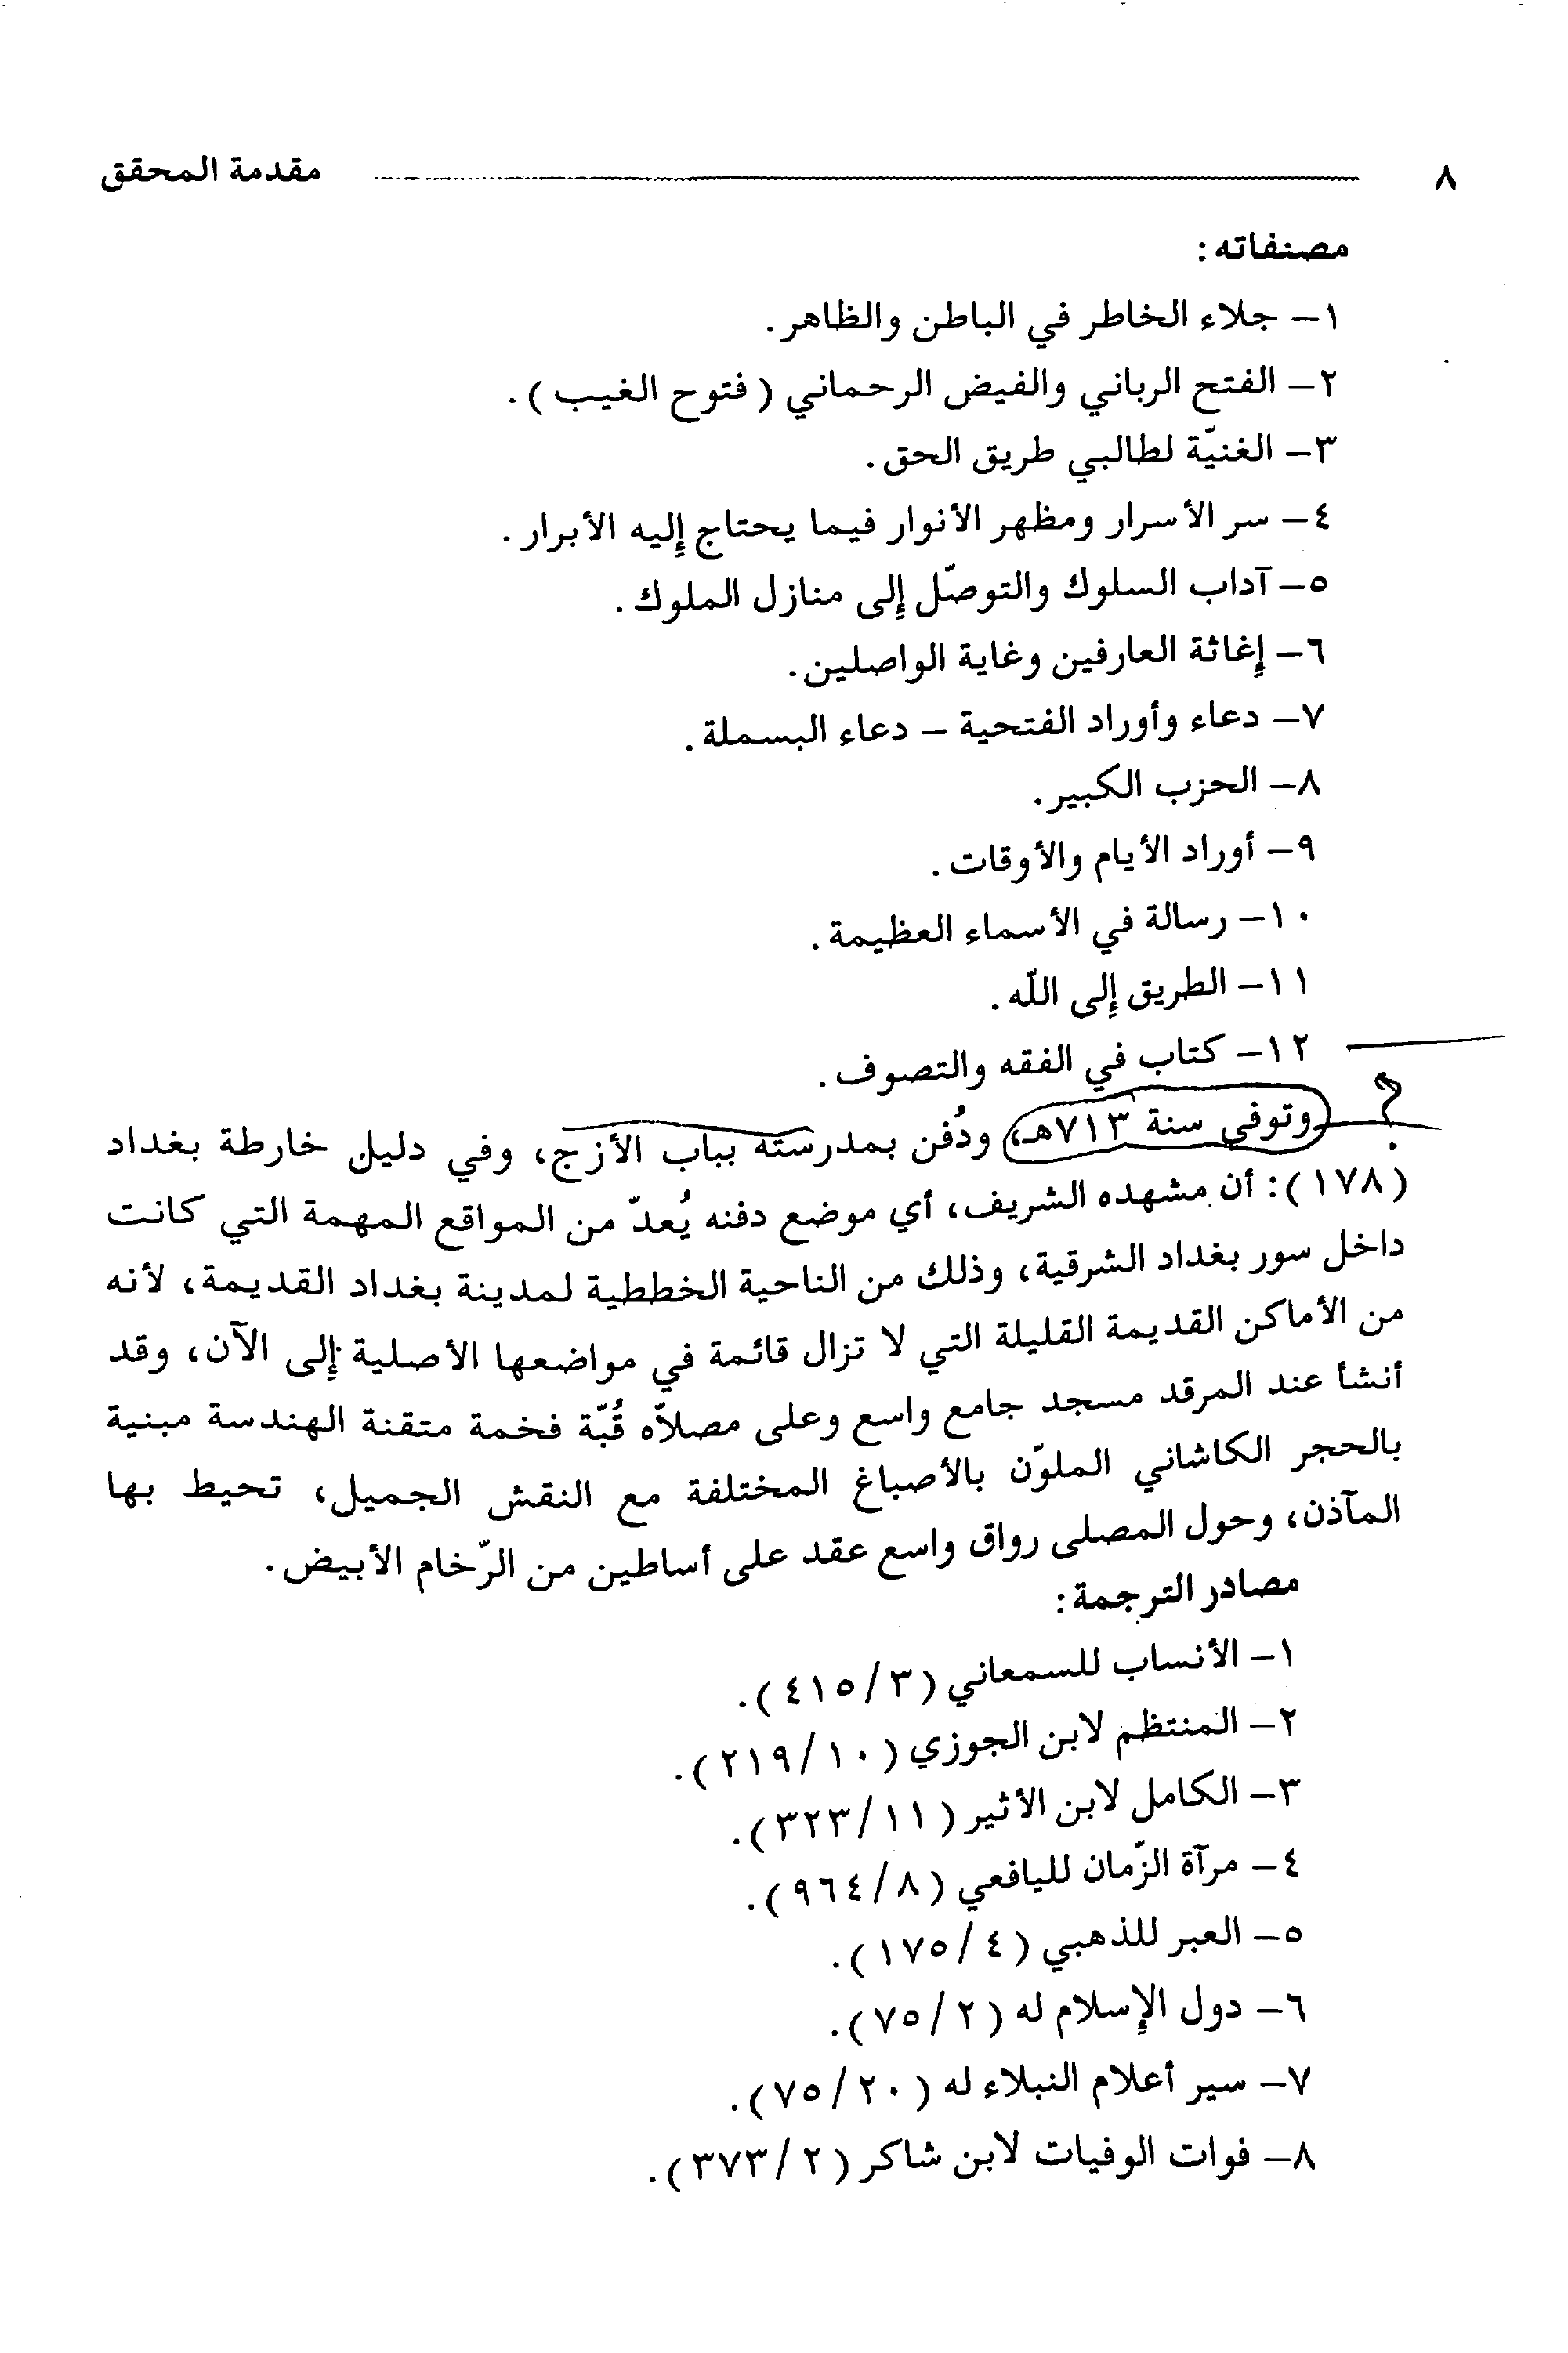 ٨ مقدمة المحقق
مصنفاته :
١- جلاء الخاطر في الباطن والظاهر.
٢- الفتح الرباني والفيض الرحماني ( فتوح الغيب ) .
٣- الغنيّة لطالبي طريق الحق.
٤- سر الأسرار ومظهر الأنوار فيما يحتاج إليه الأبرار .
٥- آداب السلوك والتوصّل إلى منازل الملوك.
٦- إغاثة العارفين وغاية الواصلين.
٧- دعاء وأوراد الفتحية - دعاء البسملة.
٨- الحزب الكبير.
٩- أوراد الأيام والأوقات.
١٠- رسالة في الأسماء العظيمة.
١١- الطريق إلى اللّه.
١٢- كتاب في الفقه والتصوف.
؟
وتوفي سنة ٧١٣هـ، ودُفن بمدرسته بباب الأزج، وفي دليل خارطة بغداد
(١٧٨): أن مشهده الشريف، أي موضع دفنه يُعدّ من المواقع المهمة التي كانت
داخل سور بغداد الشرقية، وذلك من الناحية الخططية لمدينة بغداد القديمة، لأنه
من الأماكن القديمة القليلة التي لا تزال قائمة في مواضعها الأصلية إلى الآن، وقد
أنشأ عند المرقد مسجد جامع واسع وعلى مصلاّه قُبّة فخمة متقنة الهندسة مبنية
بالحجر الكاشاني الملوّن بالأصباغ المختلفة مع النقش الجميل، تحيط بها
المآذن، وحول المصلى رواق واسع عقد على أساطين من الرّخام الأبيض.
مصادر الترجمة:
١- الأنساب للسمعاني (٤١٥/٣).
٢- المنتظم لابن الجوزي (٢١٩/١٠).
٣- الكامل لابن الأثير (٣٢٣/١١).
٤- مرآة الزّمان لليافعي (٩٦٤/٨).
٥- العبر للذهبي (١٧٥/٤).
٦- دول الإسلام له (٧٥/٢).
٧- سير أعلام النبلاء له (٧٥/٢٠).
٨- فوات الوفيات لابن شاكر (٣٧٣/٢).